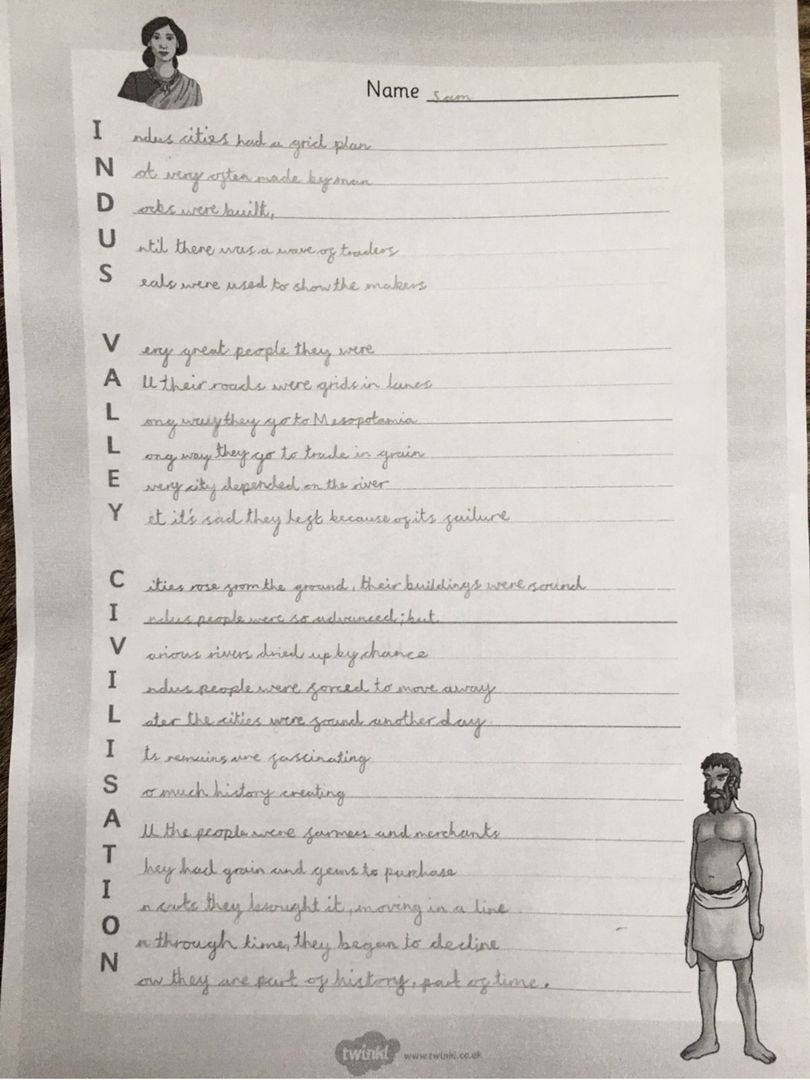 Name Sam
Indus cities had a grid plan
Not very often made by man
Docks were built,
Until there was a wave of traders
Seals were used to show the makers
Very great people they were
All their roads were grids in lanes
Long way they go to Mesopotamia
Long way they go to trade in grain
Every city depended on the river
Yet it's sad they left because of its failure
Cities rose from the ground, their buildings were sound
Indus people were so advanced; but
Various rivers dried up by chance
Indus people were forced to move away
Later the cities were found another day
Its remains are fascinating
So much history creating
All the people were farmers and merchants
They had grain and gems to purchase
In carts they brought it, moving in a line
On through time, they began to decline
Now they are part of history, part of time.
twinkl www.twinkl.co.uk